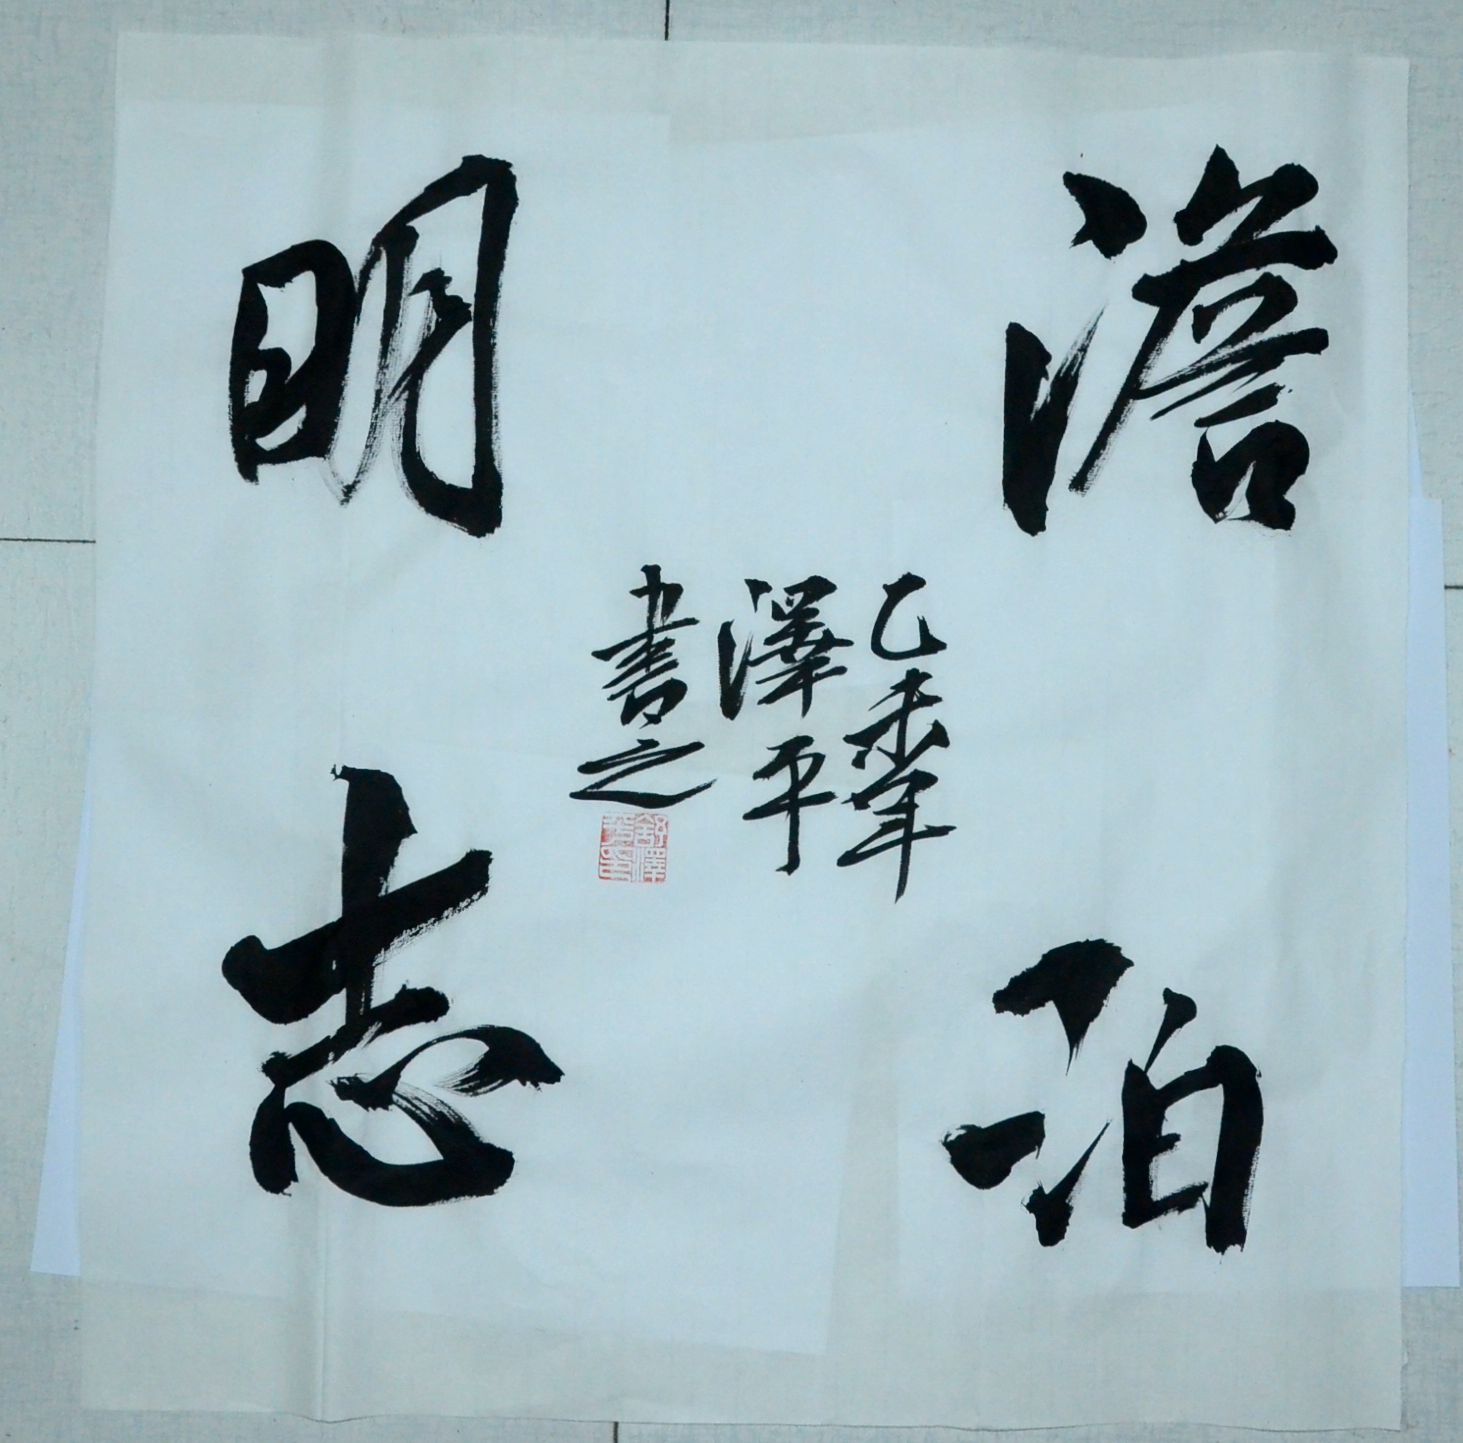 澹泊
明志
乙未年
澤平
書之